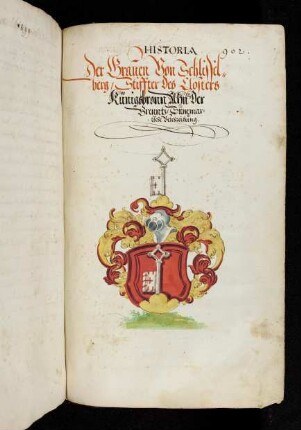 HISTORIA
902.
Der Grauen Von Schlüssel-
berg / Stifter des Closters
Künigsbronn Ahn Der
Brentz /